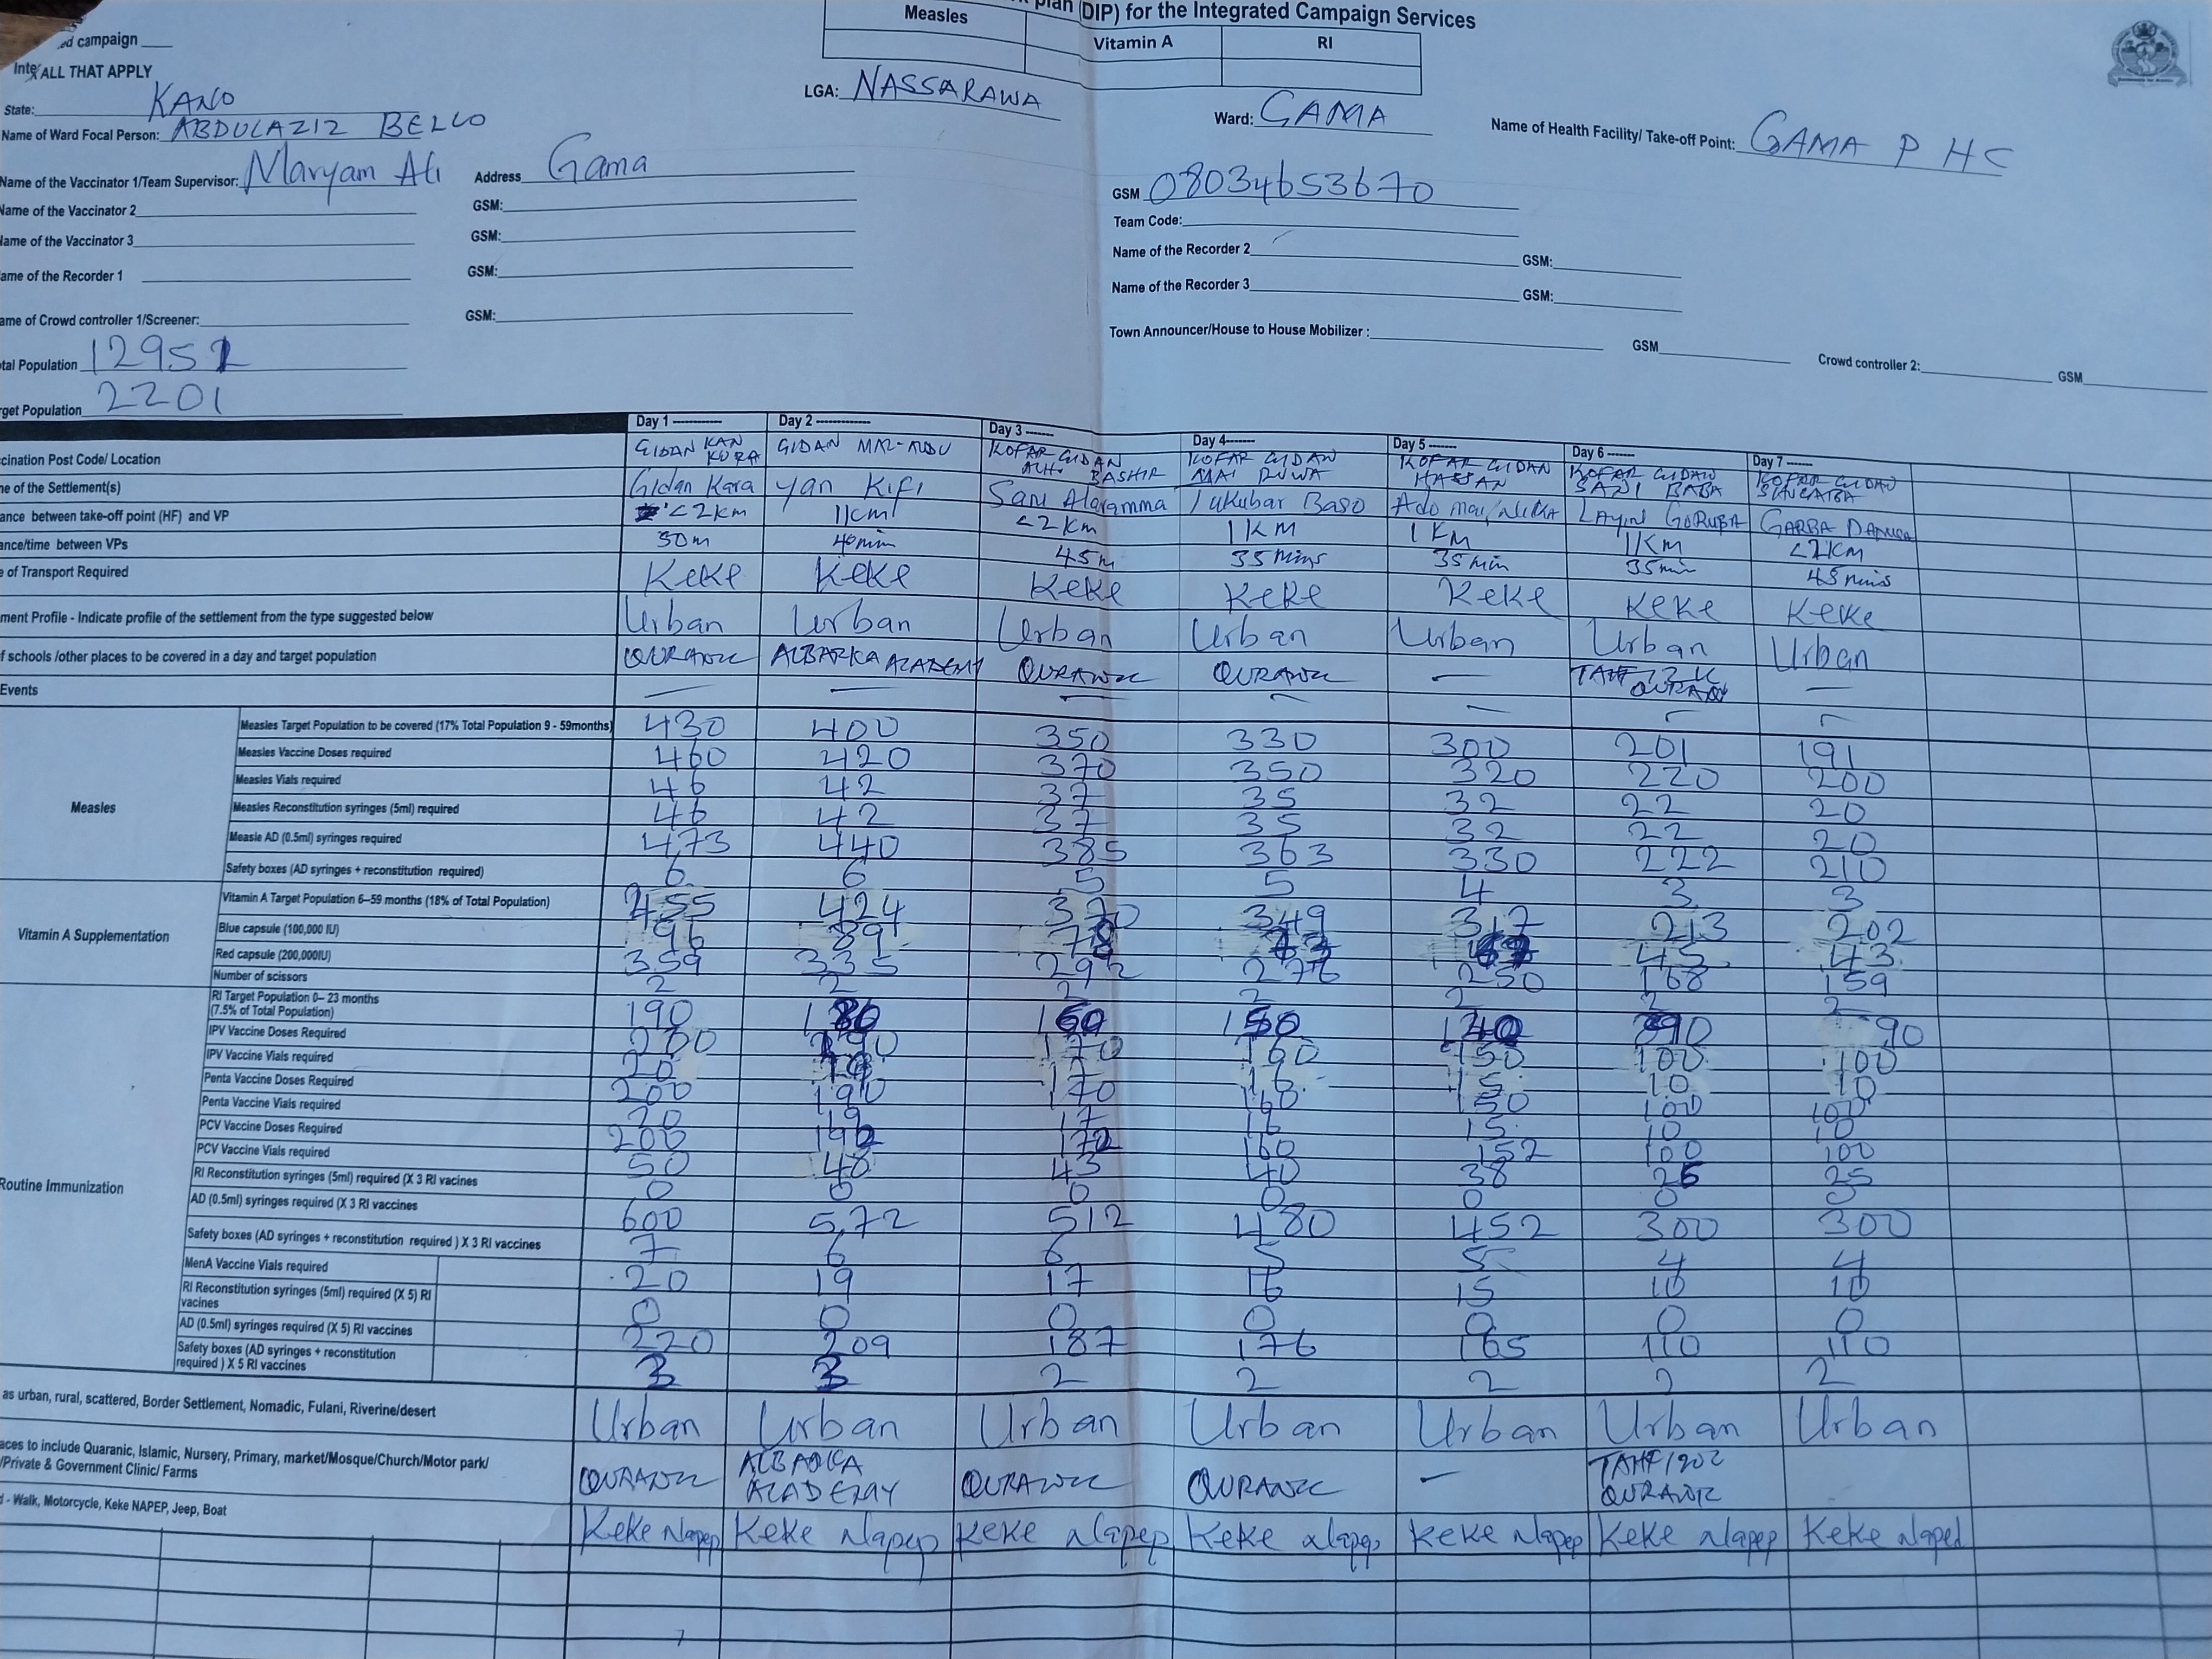 plan DIP) for the Integrated Campaign Services
Measles Vitamin A RI
campaign
ALL THAT APPLY
State: KANO LGA: NASSARAWA Ward: GAMA Name of Health Facility/ Take-off Point: GAMA P H C
Name of Ward Focal Person: ABDULAZIZ BELLO
Name of the Vaccinator 1/Team Supervisor: Maryam Ali Address Gama GSM 08034653670
Name of the Vaccinator 2 GSM: Team Code:
Name of the Vaccinator 3 GSM: Name of the Recorder 2 GSM:
ame of the Recorder 1 GSM: Name of the Recorder 3 GSM:
ame of Crowd controller 1/Screener: GSM: Town Announcer/House to House Mobilizer : GSM Crowd controller 2: GSM
tal Population 12951
rget Population 2201
Day 1 Day 2 Day 3 Day 4 Day 5 Day 6 Day 7
cination Post Code/ Location GIDAN KAN KORA GIDAN KOFAR GIDAN ALH BASHIR KOFAR GIDAN MAI RUWA KOFAR GIDAN HASSAN KOFAR GIDAN BABA KOFAR GIDAN
e of the Settlement(s) Gidan Kara Yan Kifi Sani Alaramma Yakubar Baso Ado Layin GORUBA GARBA
ance between take-off point (HF) and VP <2km 1km <2km 1km 1km 1km <2km
ance/time between VPs 30m 40min 45m 35mins 35min 35min 45mins
e of Transport Required Keke Keke Keke Keke Keke Keke Keke
ment Profile - Indicate profile of the settlement from the type suggested below Urban Urban Urban Urban Urban Urban Urban
f schools /other places to be covered in a day and target population QURANIC ALBARKA ACADEMY QURANIC QURANIC - -
Events
Measles
Measles Target Population to be covered (17% Total Population 9 - 59months) 430 400 350 330 300 201 191
Measles Vaccine Doses required 460 420 370 350 320 220 200
Measles Vials required 46 42 37 35 32 22 20
Measles Reconstitution syringes (5ml) required 46 42 37 35 32 22 20
Measle AD (0.5ml) syringes required 473 440 385 363 330 222 210
Safety boxes (AD syringes + reconstitution required) 6 6 5 5 4 3 3
Vitamin A Supplementation
Vitamin A Target Population 6-59 months (18% of Total Population) 455 424 370 349 317 213 202
Blue capsule (100,000 IU) 96 89 78 45 43
Red capsule (200,000IU) 359 335 292 276 250 168 159
Number of scissors 2 2 2 2 2 2 2
Routine Immunization
RI Target Population 0- 23 months (7.5% of Total Population) 190 180 160 150 140 90 90
IPV Vaccine Doses Required 200 190 170 160 150 100 100
IPV Vaccine Vials required 20 17 16 15 10 10
Penta Vaccine Doses Required 200 190 170 160 150 100 100
Penta Vaccine Vials required 20 19 17 16 15 10 10
PCV Vaccine Doses Required 200 190 170 160 152 100 100
PCV Vaccine Vials required 50 48 43 40 38 25 25
RI Reconstitution syringes (5ml) required (X 3 RI vacines 0 0 0 0 0 0 0
AD (0.5ml) syringes required (X 3 RI vaccines 600 572 512 480 452 300 300
Safety boxes (AD syringes + reconstitution required ) X 3 RI vaccines 7 6 6 5 5 4 4
MenA Vaccine Vials required 20 19 17 16 15 10 10
RI Reconstitution syringes (5ml) required (X 5) RI vacines 0 0 0 0 0 0 0
AD (0.5ml) syringes required (X 5) RI vaccines 220 209 187 176 165 110 110
Safety boxes (AD syringes + reconstitution required ) X 5 RI vaccines 3 3 2 2 2 2 2
as urban, rural, scattered, Border Settlement, Nomadic, Fulani, Riverine/desert Urban Urban Urban Urban Urban Urban Urban
aces to include Quranic, Islamic, Nursery, Primary, market/Mosque/Church/Motor park/ /Private & Government Clinic/ Farms QURANIC ALBARKA ACADEMY QURANIC QURANIC - QURANIC
- Walk, Motorcycle, Keke NAPEP, Jeep, Boat Keke Napep Keke Napep Keke Napep Keke Napep Keke Napep Keke Napep Keke Naped